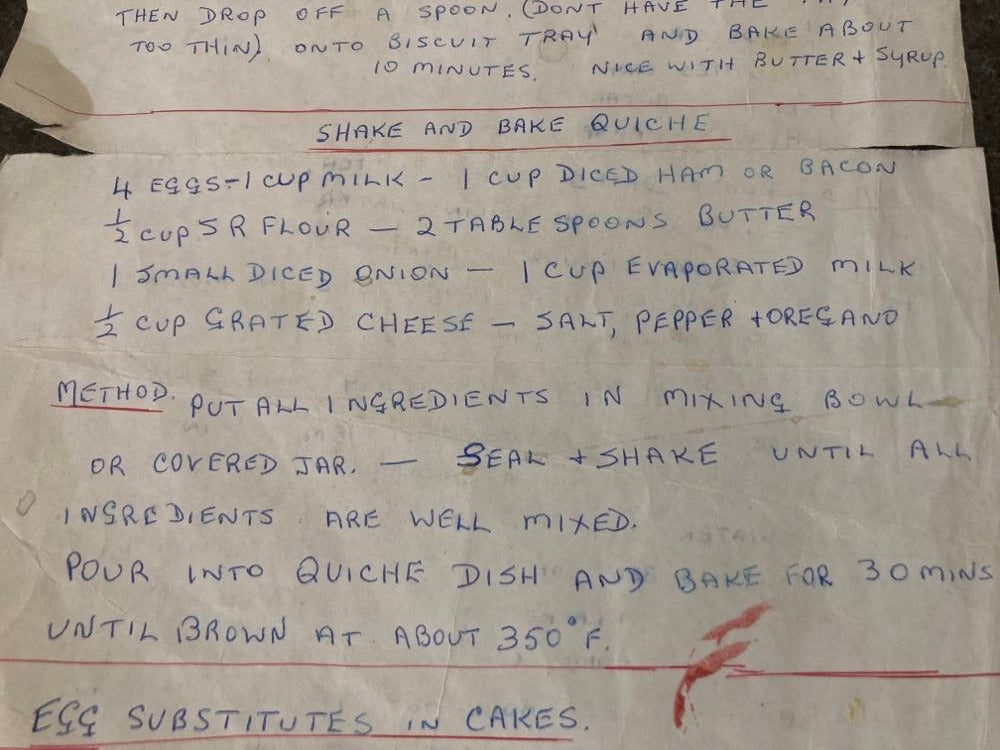 THEN DROP OFF A SPOON. (DONT HAVE THE
TOO THIN). ONTO BISCUIT TRAY AND BAKE ABOUT
10 MINUTES. NICE WITH BUTTER + SYRUP.
SHAKE AND BAKE QUICHE
4 EGGS - 1 CUP MILK - 1 CUP DICED HAM OR BACON
½ CUP S R FLOUR - 2 TABLESPOONS BUTTER
1 SMALL DICED ONION - 1 CUP EVAPORATED MILK
½ CUP GRATED CHEESE - SALT, PEPPER + OREGANO
METHOD. PUT ALL INGREDIENTS IN MIXING BOWL
OR COVERED JAR. - SEAL + SHAKE UNTIL ALL
INGREDIENTS ARE WELL MIXED.
POUR INTO QUICHE DISH AND BAKE FOR 30 MINS
UNTIL BROWN AT ABOUT 350°F.
EGG SUBSTITUTES IN CAKES.